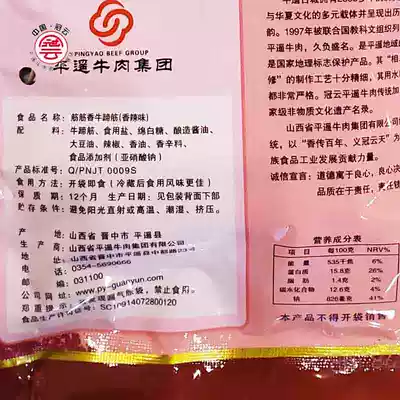 中国·冠云
冠云
PINGYAO BEEF GROUP
平遥牛肉集团
食品名称: 筋筋香牛蹄筋(香辣味)
牛蹄筋、食用盐、绵白糖、酿造酱油、
大豆油、辣椒、香油、香辛料、
食品添加剂(亚硝酸钠)
产品标准号: Q/PNJT 0009S
食用方法: 开袋即食(冷藏后食用风味更佳)
保质期: 12个月 生产日期: 见包装背面下部
贮存条件: 避免阳光直射或高温、潮湿、挤压。
产地: 山西省 晋中市 平遥县
生产商: 山西省平遥牛肉集团有限公司
地址: 山西省晋中市平遥县中都路
电话: 0354-5690666
邮编: 031100
网址: www.py-guanyun.com
胀袋,禁止食用。
生产许可证号: SC10914072800120
与华夏文化的多元载体并呈现出历
韵。1997年被联合国教科文组织列
牛肉,久负盛名。是平遥地域
是国家地理标志保护产品。其"相
修"的制作工艺十分精细,其用水
都非常严格。冠云平遥牛肉传统加
家级非物质文化遗产名录。
山西省平遥牛肉集团有限公
统,以"香传百年、义冠云天"为
族食品工业发展贡献力量。
诚信宣言: 道德寓于良心,良心决
营养成分表
项目 每100克 NRV%
能量 535千焦 6%
蛋白质 15.8克 26%
脂肪 1.4克 2%
碳水化合物 12.6克 4%
钠 826毫克 41%
本产品不得开袋销售